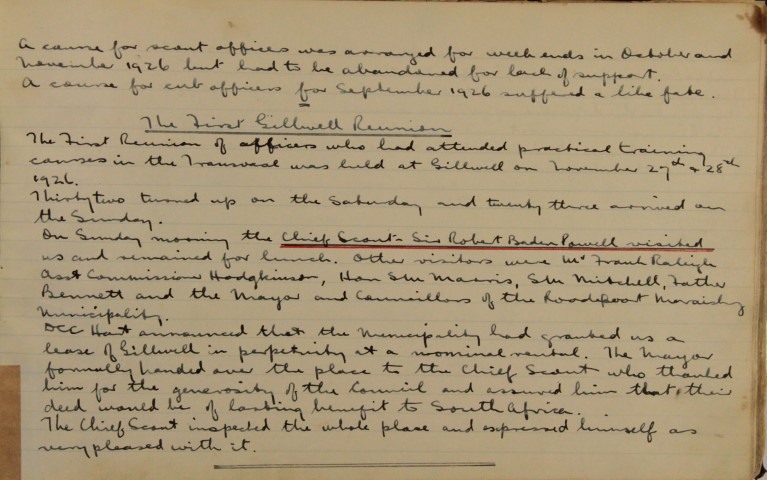 A course for scout officers was arranged for week ends in October and
November 1926 but had to be abandoned for lack of support.
A course for cub officers for September 1926 suffered a like fate.
The First Gillwell Reunion
The First Reunion of officers who had attended practical training
courses in the Transvaal was held at Gillwell on November 27th & 28th
1926.
Thirty two turned up on the Saturday and twenty three arrived on
the Sunday.
On Sunday morning the Chief Scout - Sir Robert Baden Powell visited
us and remained for lunch. Other visitors were Mr Frank Raleigh
Asst Commissioner Hodgkinson, Hon S/m Morris, S/m Mitchell, Father
Bennett and the Mayor and Councillors of the Roodepoort Maraisburg
Municipality.
DCC Hart announced that the Municipality had granted us a
lease of Gillwell in perpetuity at a nominal rental. The Mayor
formally handed over the place to the Chief Scout who thanked
him for the generosity of the Council and assured him that their
deed would be of lasting benefit to South Africa.
The Chief Scout inspected the whole place and expressed himself as
very pleased with it.